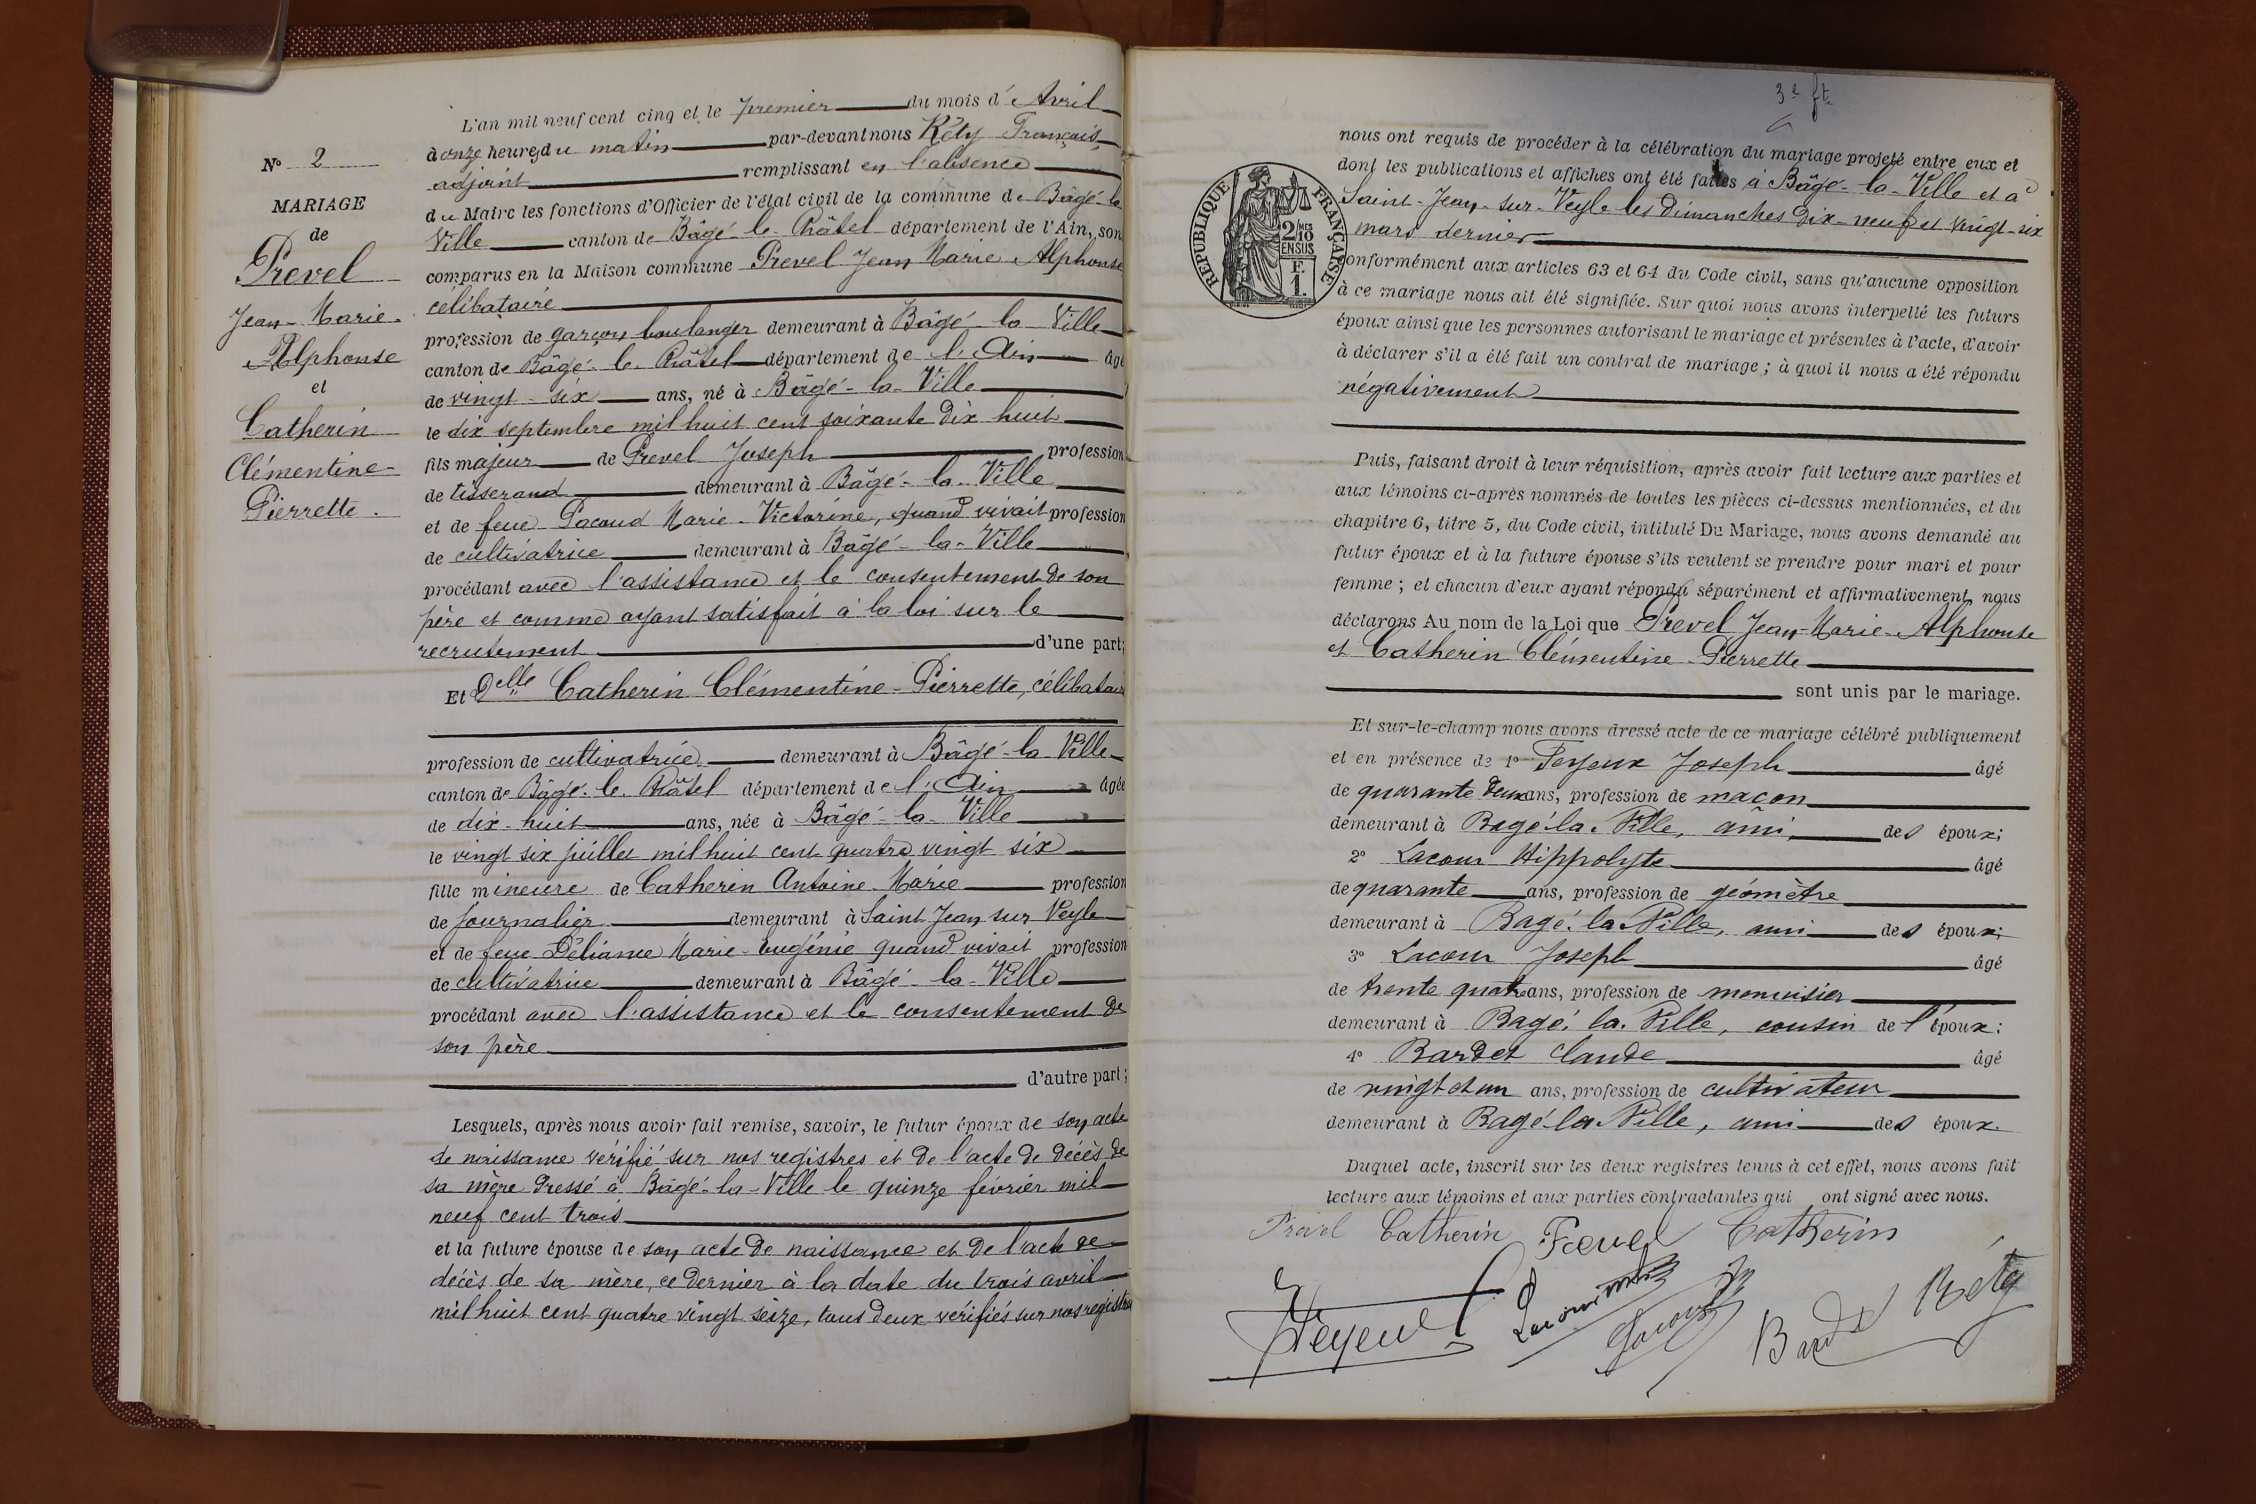 N° 2
MARIAGE
de
Prevel
Jean-Marie-
Alphonse
et
Catherin
Clémentine-
Pierrette.
L'an mil neuf cent cinq et le premier du mois d'Avril
à onze heures du matin par-devant nous Réty François
adjoint remplissant en l'absence
du Maire les fonctions d'Officier de l'état civil de la commune de Bâgé-la
Ville canton de Bâgé-le-Châtel département de l'Ain, son
comparus en la Maison commune Prevel Jean Marie Alphonse
célibataire
profession de garçon boulanger demeurant à Bâgé-la-Ville
canton de Bâgé-le-Châtel département de l'Ain âgé
de vingt-six ans, né à Bâgé-la-Ville
le dix septembre mil huit cent soixante dix huit
fils majeur de Prevel Joseph profession
de tisserand demeurant à Bâgé-la-Ville
et de feue Pacoud Marie-Victorine, quand vivait profession
de cultivatrice demeurant à Bâgé-la-Ville
procédant avec l'assistance et le consentement de son
père et comme ayant satisfait à la loi sur le
recrutement d'une part;
Et Delle Catherin Clémentine-Pierrette, célibataire
profession de cultivatrice demeurant à Bâgé-la-Ville
canton de Bâgé-le-Châtel département de l'Ain âgée
de dix-huit ans, née à Bâgé-la-Ville
le vingt six juillet mil huit cent quatre vingt six
fille mineure de Catherin Antoine-Marie profession
de journalier demeurant à Saint Jean sur Veyle
et de feue Déliance Marie-Eugénie quand vivait profession
de cultivatrice demeurant à Bâgé-la-Ville
procédant avec l'assistance et le consentement de
son père
d'autre part;
Lesquels, après nous avoir fait remise, savoir, le futur époux de son acte
de naissance vérifié sur nos registres et de l'acte de décès de
sa mère dressé à Bâgé-la-Ville le quinze février mil
neuf cent trois
et la future épouse de son acte de naissance et de l'acte de
décès de sa mère, ce dernier à la date du trois avril
mil huit cent quatre vingt seize, tous deux vérifiés sur nos registres
3e ft.
RÉPUBLIQUE FRANÇAISE
2/10 MES
EN SUS
F.
1.
nous ont requis de procéder à la célébration du mariage projeté entre eux et
dont les publications et affiches ont été faites à Bâgé-la-Ville et à
Saint-Jean-sur-Veyle les dimanches dix-neuf et vingt-six
mars dernier
conformément aux articles 63 et 64 du Code civil, sans qu'aucune opposition
à ce mariage nous ait été signifiée. Sur quoi nous avons interpellé les futurs
époux ainsi que les personnes autorisant le mariage et présentes à l'acte, d'avoir
à déclarer s'il a été fait un contrat de mariage; à quoi il nous a été répondu
négativement
Puis, faisant droit à leur réquisition, après avoir fait lecture aux parties et
aux témoins ci-après nommés de toutes les pièces ci-dessus mentionnées, et du
chapitre 6, titre 5, du Code civil, intitulé Du Mariage, nous avons demandé au
futur époux et à la future épouse s'ils veulent se prendre pour mari et pour
femme; et chacun d'eux ayant répondu séparément et affirmativement, nous
déclarons Au nom de la Loi que Prevel Jean-Marie-Alphonse
et Catherin Clémentine-Pierrette
sont unis par le mariage.
Et sur-le-champ nous avons dressé acte de ce mariage célébré publiquement
et en présence de 1° Feyeux Joseph âgé
de quarante deux ans, profession de maçon
demeurant à Bagé-la-Ville, ami des époux;
2° Lacour Hippolyte âgé
de quarante ans, profession de géomètre
demeurant à Bagé-la-Ville, ami des époux;
3° Lacour Joseph âgé
de trente quatre ans, profession de menuisier
demeurant à Bagé-la-Ville, cousin de l'époux;
4° Bardet Claude âgé
de vingt et un ans, profession de cultivateur
demeurant à Bagé-la-Ville, ami des époux.
Duquel acte, inscrit sur les deux registres tenus à cet effet, nous avons fait
lecture aux témoins et aux parties contractantes qui ont signé avec nous.
Prevel Catherin Prevel Catherin
Feyeux Lacour Lacour Bardet Réty